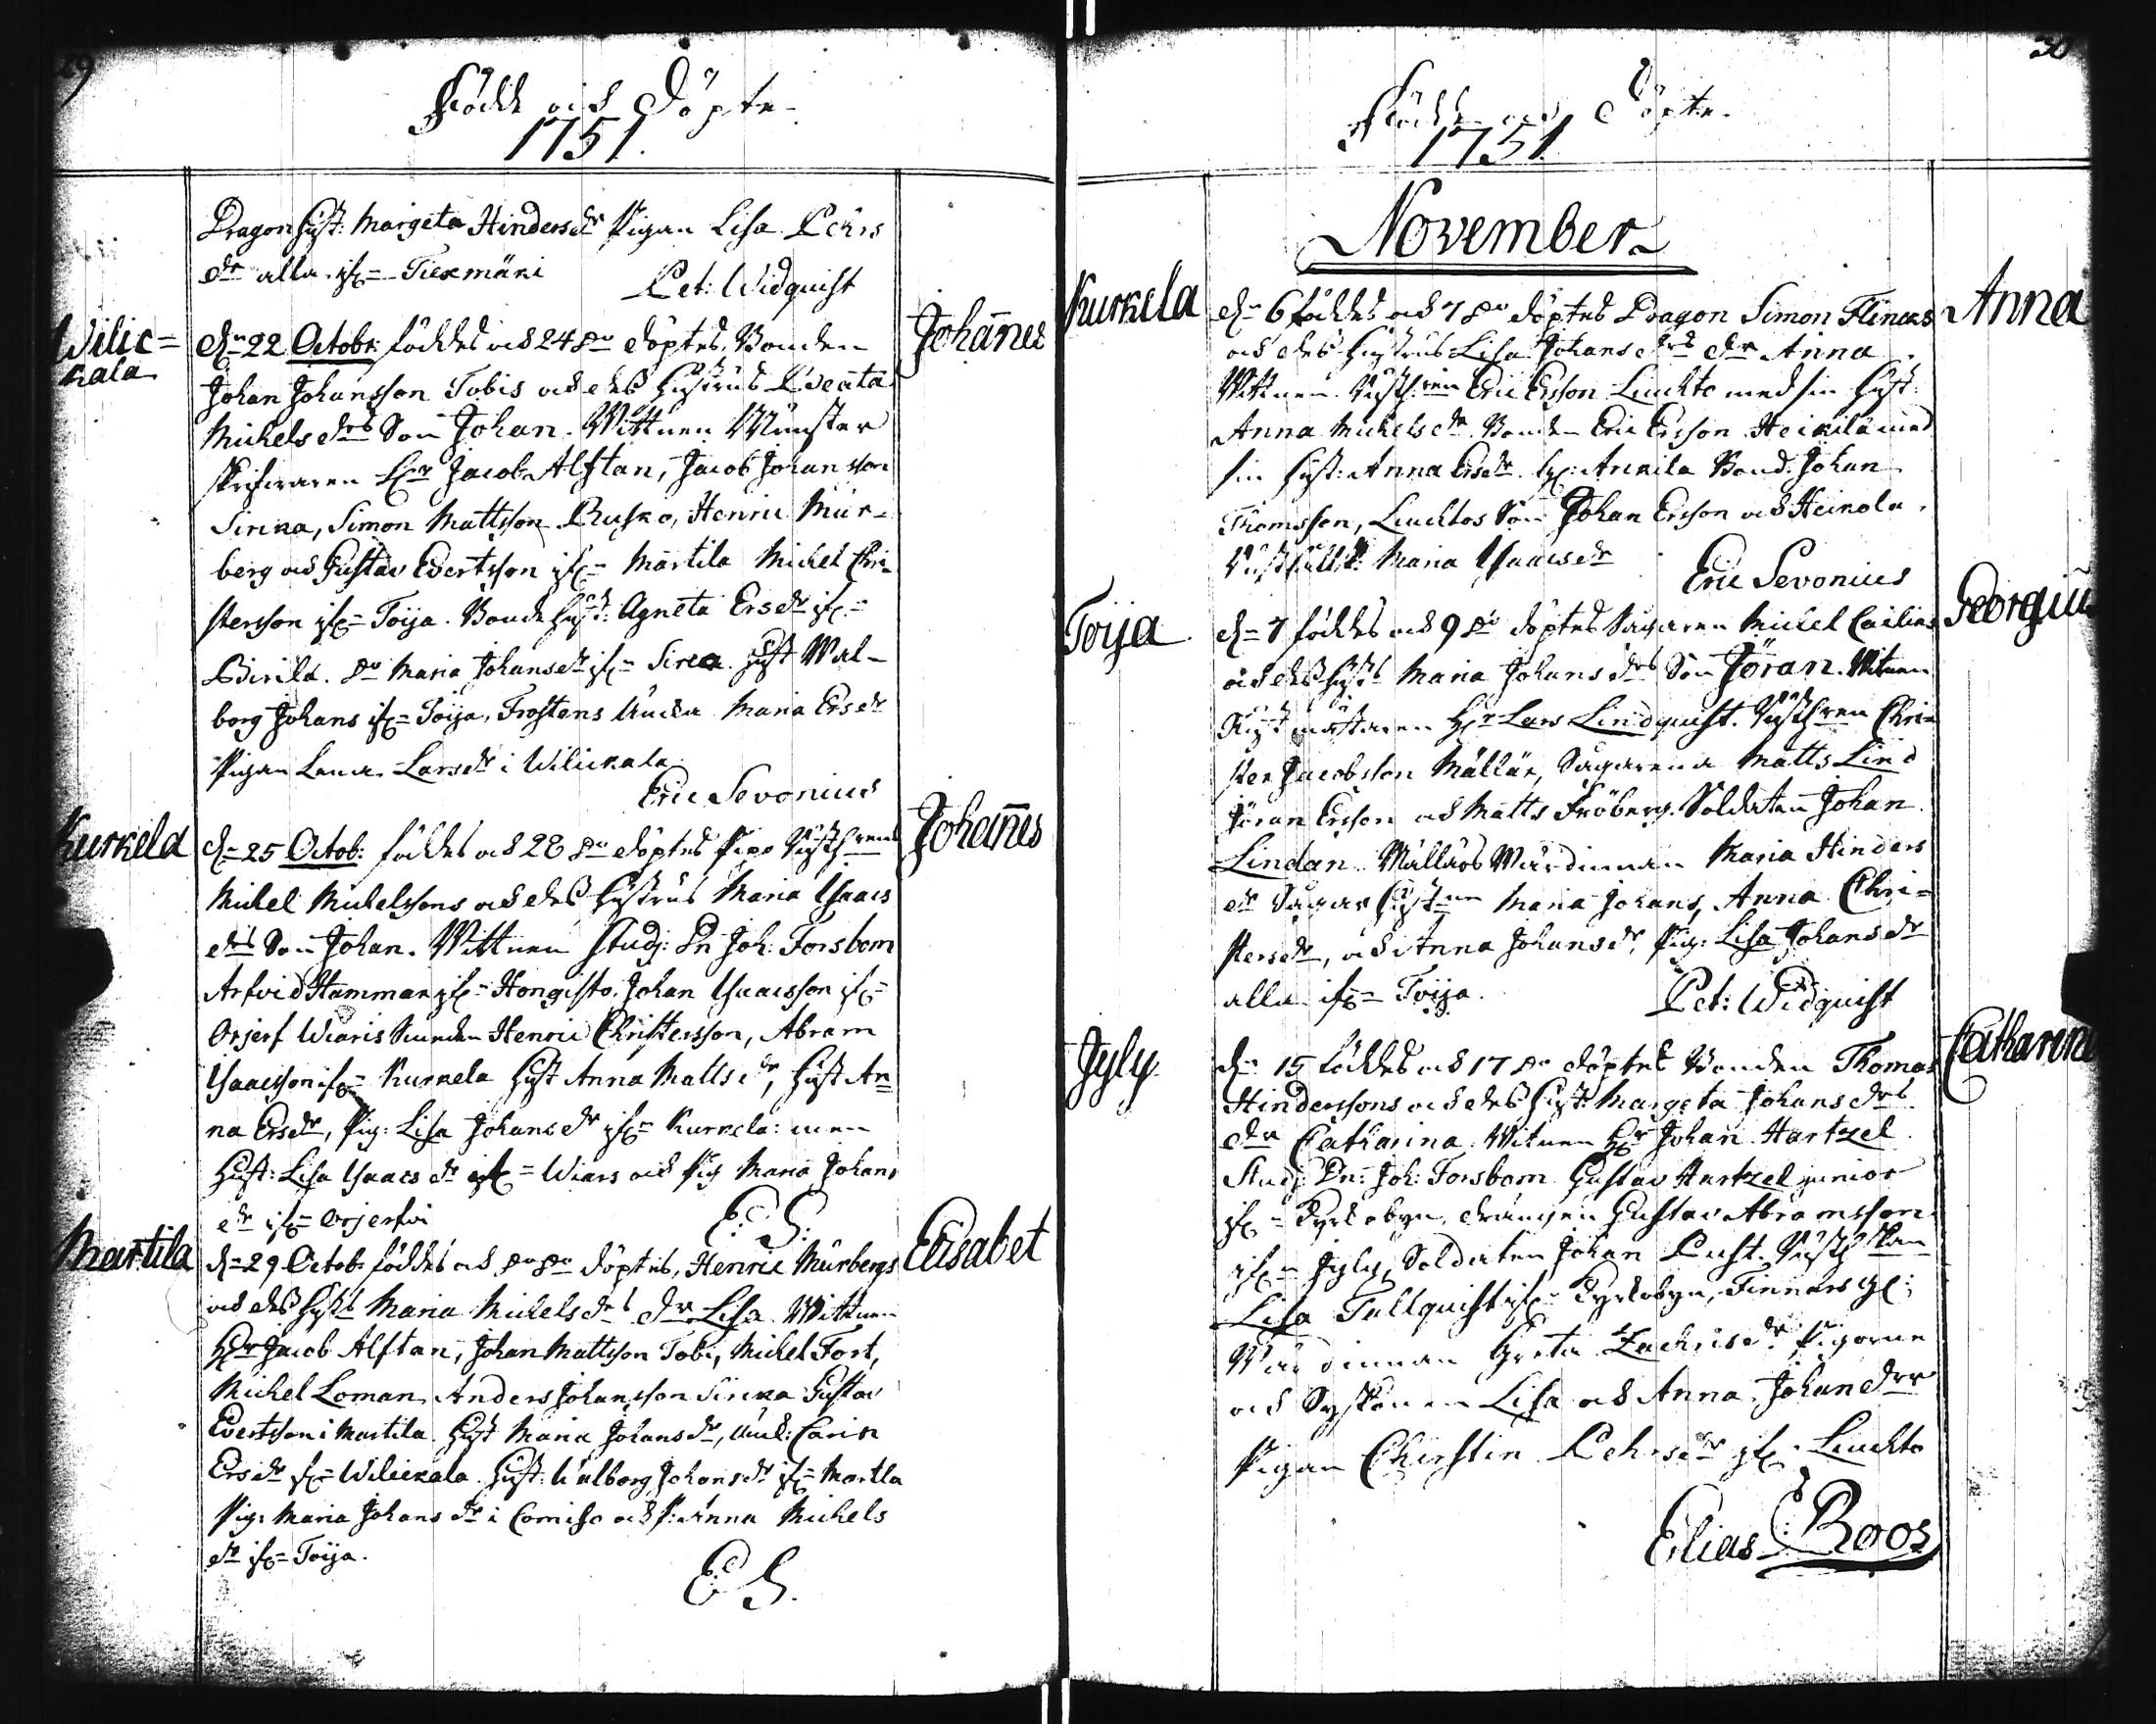 29
Födde och Döpte
1751.
Dragon Hust: Margeta Hindersdr Pigan Lisa Pehrs
dr alla ifr= Tiexmäki
Pet: Widquist
Wilic=
kala
Johannes
dn 22 Octobr: föddes och 24 do döptes Bonden
Johan Johansson Tobis och des Hustrus Beata
Michels drs Son Johan. Wittnen Mönster
skrifvaren Hr Jacob Alftan, Jacob Johansson
Sirkka, Simon Mattsson Rusko, Henric Mur-
berg och Gustav Evertsson ifr= Martila Michel Chri-
stersson ifr= Toija. Bonde Hust: Agneta Ersdr ifr=
Birila. do Maria Johansdr ifr= Sirca. Hust Wal-
borg Johans ifr= Toija, Frostens Encka Maria Ersdr
Pigan Lena Larsdr i Wilickala
Eric Sevonius
Kurkela
Johannes
dn 25 Octob: föddes och 28 do döptes Pipo Rusth:rens
Michel Michelssons och des Hustrus Maria Isaacs
drs Son Johan. Wittnen Stud: Dn Joh: Forsbom
Arfvid Hamman ifr= Hongisto. Johan Isaacsson ifr=
Orjerf Wiaris Henric Christersson, Abram
Isaacsson ifr= Kurkela Hust Anna Matts dr, Hust An=
na Ersdr, Pig: Lisa Johans dr ifr= Kurkela: men
Hust: Lisa Isaacs dr ifr= Wiars och Pig Maria Johans
dr ifr= Orjerfvi
E: S:
Martila
Elisabet
dn 29 Octob: föddes och do do döptes, Henric Murbergs
och des Hust Maria Michels drs dr Lisa. Wittnen
Hr Jacob Alftan, Johan Mattsson Tobi, Michel Fort,
Michel Loman, Anders Johansson Sirkka Gustav
Evertsson i Martila. Hust Maria Johansdr, Enk: Carin
Ersdr ifr= Wilickala. Hust: Walborg Johansdr ifr= Martla
Pig: Maria Johans dr i Comiso och P: Anna Michels
dr ifr= Toija.
E S.
30
Födde och Döpte.
1751
November
Kurkela
Anna
dn 6 föddes och 7 do döptes Dragon Simon Flincks
och des Hustrus Lisa Johans drs dr Anna
Wittnen Rusth:ren Eric Ersson Leuchto med sin Hust:
Anna Michelsdr. Bonden Eric Ersson Heikilä med
sin Hust: Anna Ersdr. ifr: Ankila Bond: Johan
Thomsson, Leuchtos Son Johan Ersson och Heikola
Maria Isaacsdr
Eric Sevonius
Toija
Georgius
dn 7 föddes och 9 do döptes Sagaren Michel Cailius
och des Hust Maria Johans drs Son Jöran. Witnen
Rustmästaren Hr Lars Lindquist. Rusth:ren Chri=
ster Jacobsson Mällär, Sagarena Matts Lind
Jöran Ersson och Matts Fröberg. Soldaten Johan
Lindan. Mällärs Wärdinnan Maria Hinders
dr Sagar Hustrun Maria Johans, Anna Chri=
stersdr, och Anna Johansdr, Pig: Lisa Johansdr
alla ifr= Toija.
Pet: Widquist
Jyly
Catharina
dn 15 föddes och 17 do döptes Bonden Thomas
Hinderssons och des Hust: Margeta Johans drs
dr Catharina. Witnen Hr Johan Hartzel
Stud: Dn: Joh: Forsbom Gustav Hartzel junior
ifr= Kyrkobyn, drängen Gustav Abramsson
ifr= Jyly, Soldaten Johan Lust.
Lisa Tallquist ifr= Kyrkobyn, Finnars gl:
Wärdinnan Greta Zachrisdr. Pigorne
och Syskonen Lisa och Anna Johan drr
Pigan Chirstin Pehrsdr ifr= Leuchto
Elias Roos